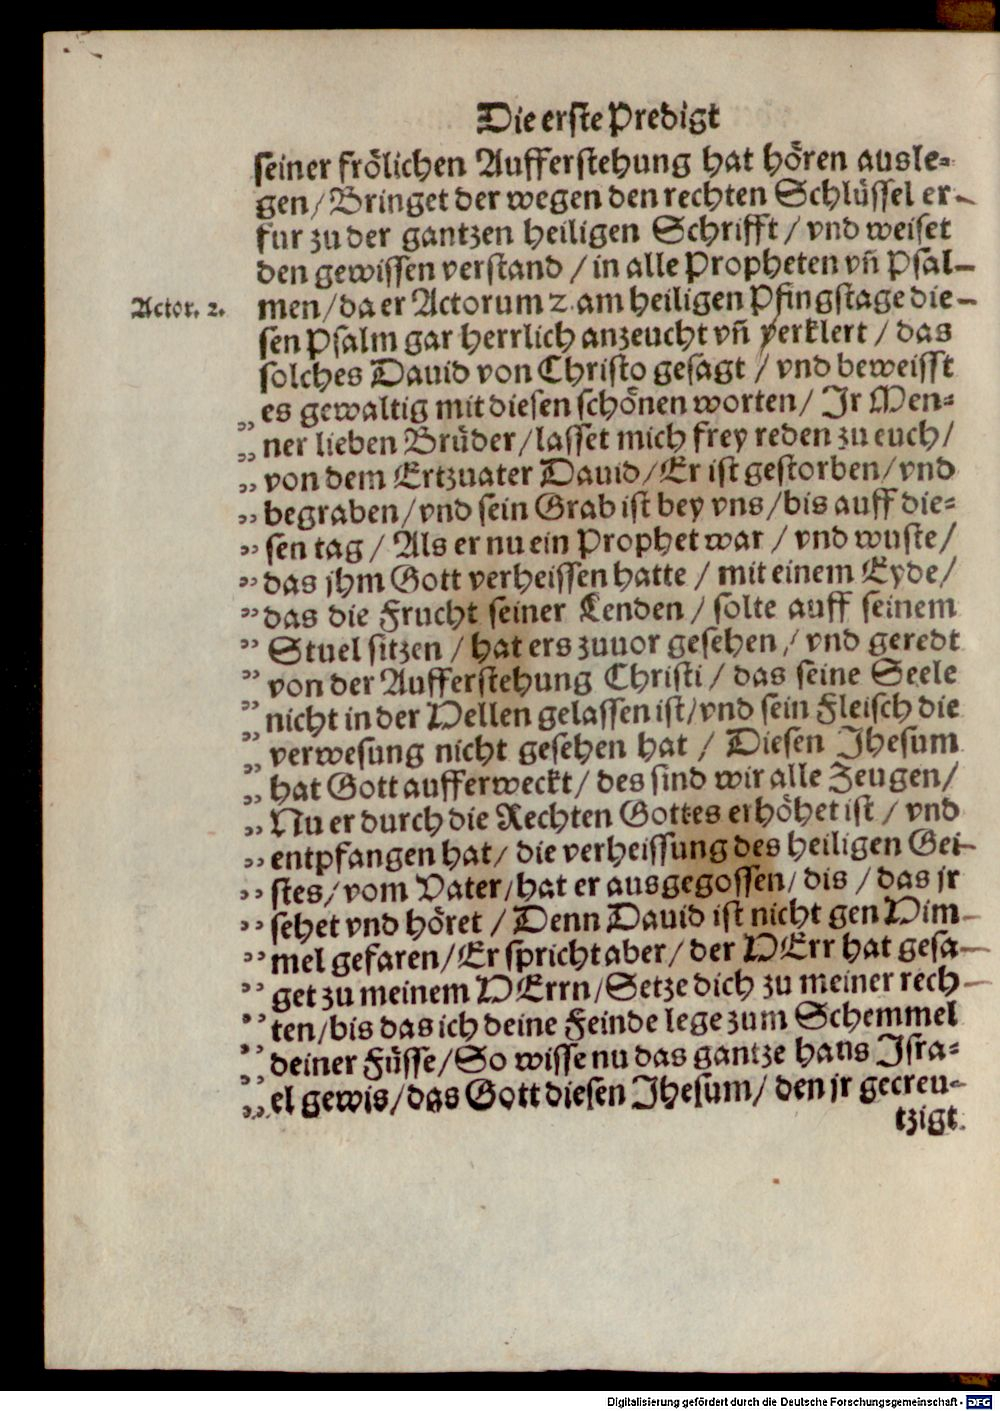 Die erste Predigt
seiner frölichen Aufferstehung hat hören ausle⸗
gen / Bringet der wegen den rechten Schlüssel er⸗
fur zu der gantzen heiligen Schrifft / vnd weiset
den gewissen verstand / in alle Propheten vñ Psal⸗
Actor. 2.
men / da er Actorum 2. am heiligen Pfingstage die⸗
sen Psalm gar herrlich anzeucht vñ verklert / das
solches Dauid von Christo gesagt / vnd beweisst
„ es gewaltig mit diesen schönen worten / Jr Men⸗
„ ner lieben Brüder / lasset mich frey reden zu euch /
„ von dem Ertzuater Dauid / Er ist gestorben / vnd
„ begraben / vnd sein Grab ist bey vns / bis auff die⸗
„ sen tag / Als er nu ein Prophet war / vnd wuste /
„ das jhm Gott verheissen hatte / mit einem Eyde /
„ das die Frucht seiner Lenden / solte auff seinem
„ Stuel sitzen / hat ers zuuor gesehen / vnd geredt
„ von der Aufferstehung Christi / das seine Seele
„ nicht in der Hellen gelassen ist / vnd sein Fleisch die
„ verwesung nicht gesehen hat / Diesen Jhesum
„ hat Gott aufferweckt / des sind wir alle Zeugen /
„ Nu er durch die Rechten Gottes erhöhet ist / vnd
„ entpfangen hat / die verheissung des heiligen Gei⸗
„ stes / vom Vater / hat er ausgegossen / dis / das jr
„ sehet vnd höret / Denn Dauid ist nicht gen Him⸗
„ mel gefaren / Er spricht aber / der HErr hat gesa⸗
„ get zu meinem HErrn / Setze dich zu meiner rech⸗
„ ten / bis das ich deine Feinde lege zum Schemmel
„ deiner Füsse / So wisse nu das gantze haus Jsra⸗
„ el gewis / das Gott diesen Jhesum / den jr gecreu⸗
tzigt
Digitalisierung gefördert durch die Deutsche Forschungsgemeinschaft - DFG